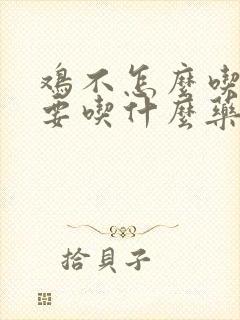 鸡不怎麼喫
要喫什麼藥
拾貝子